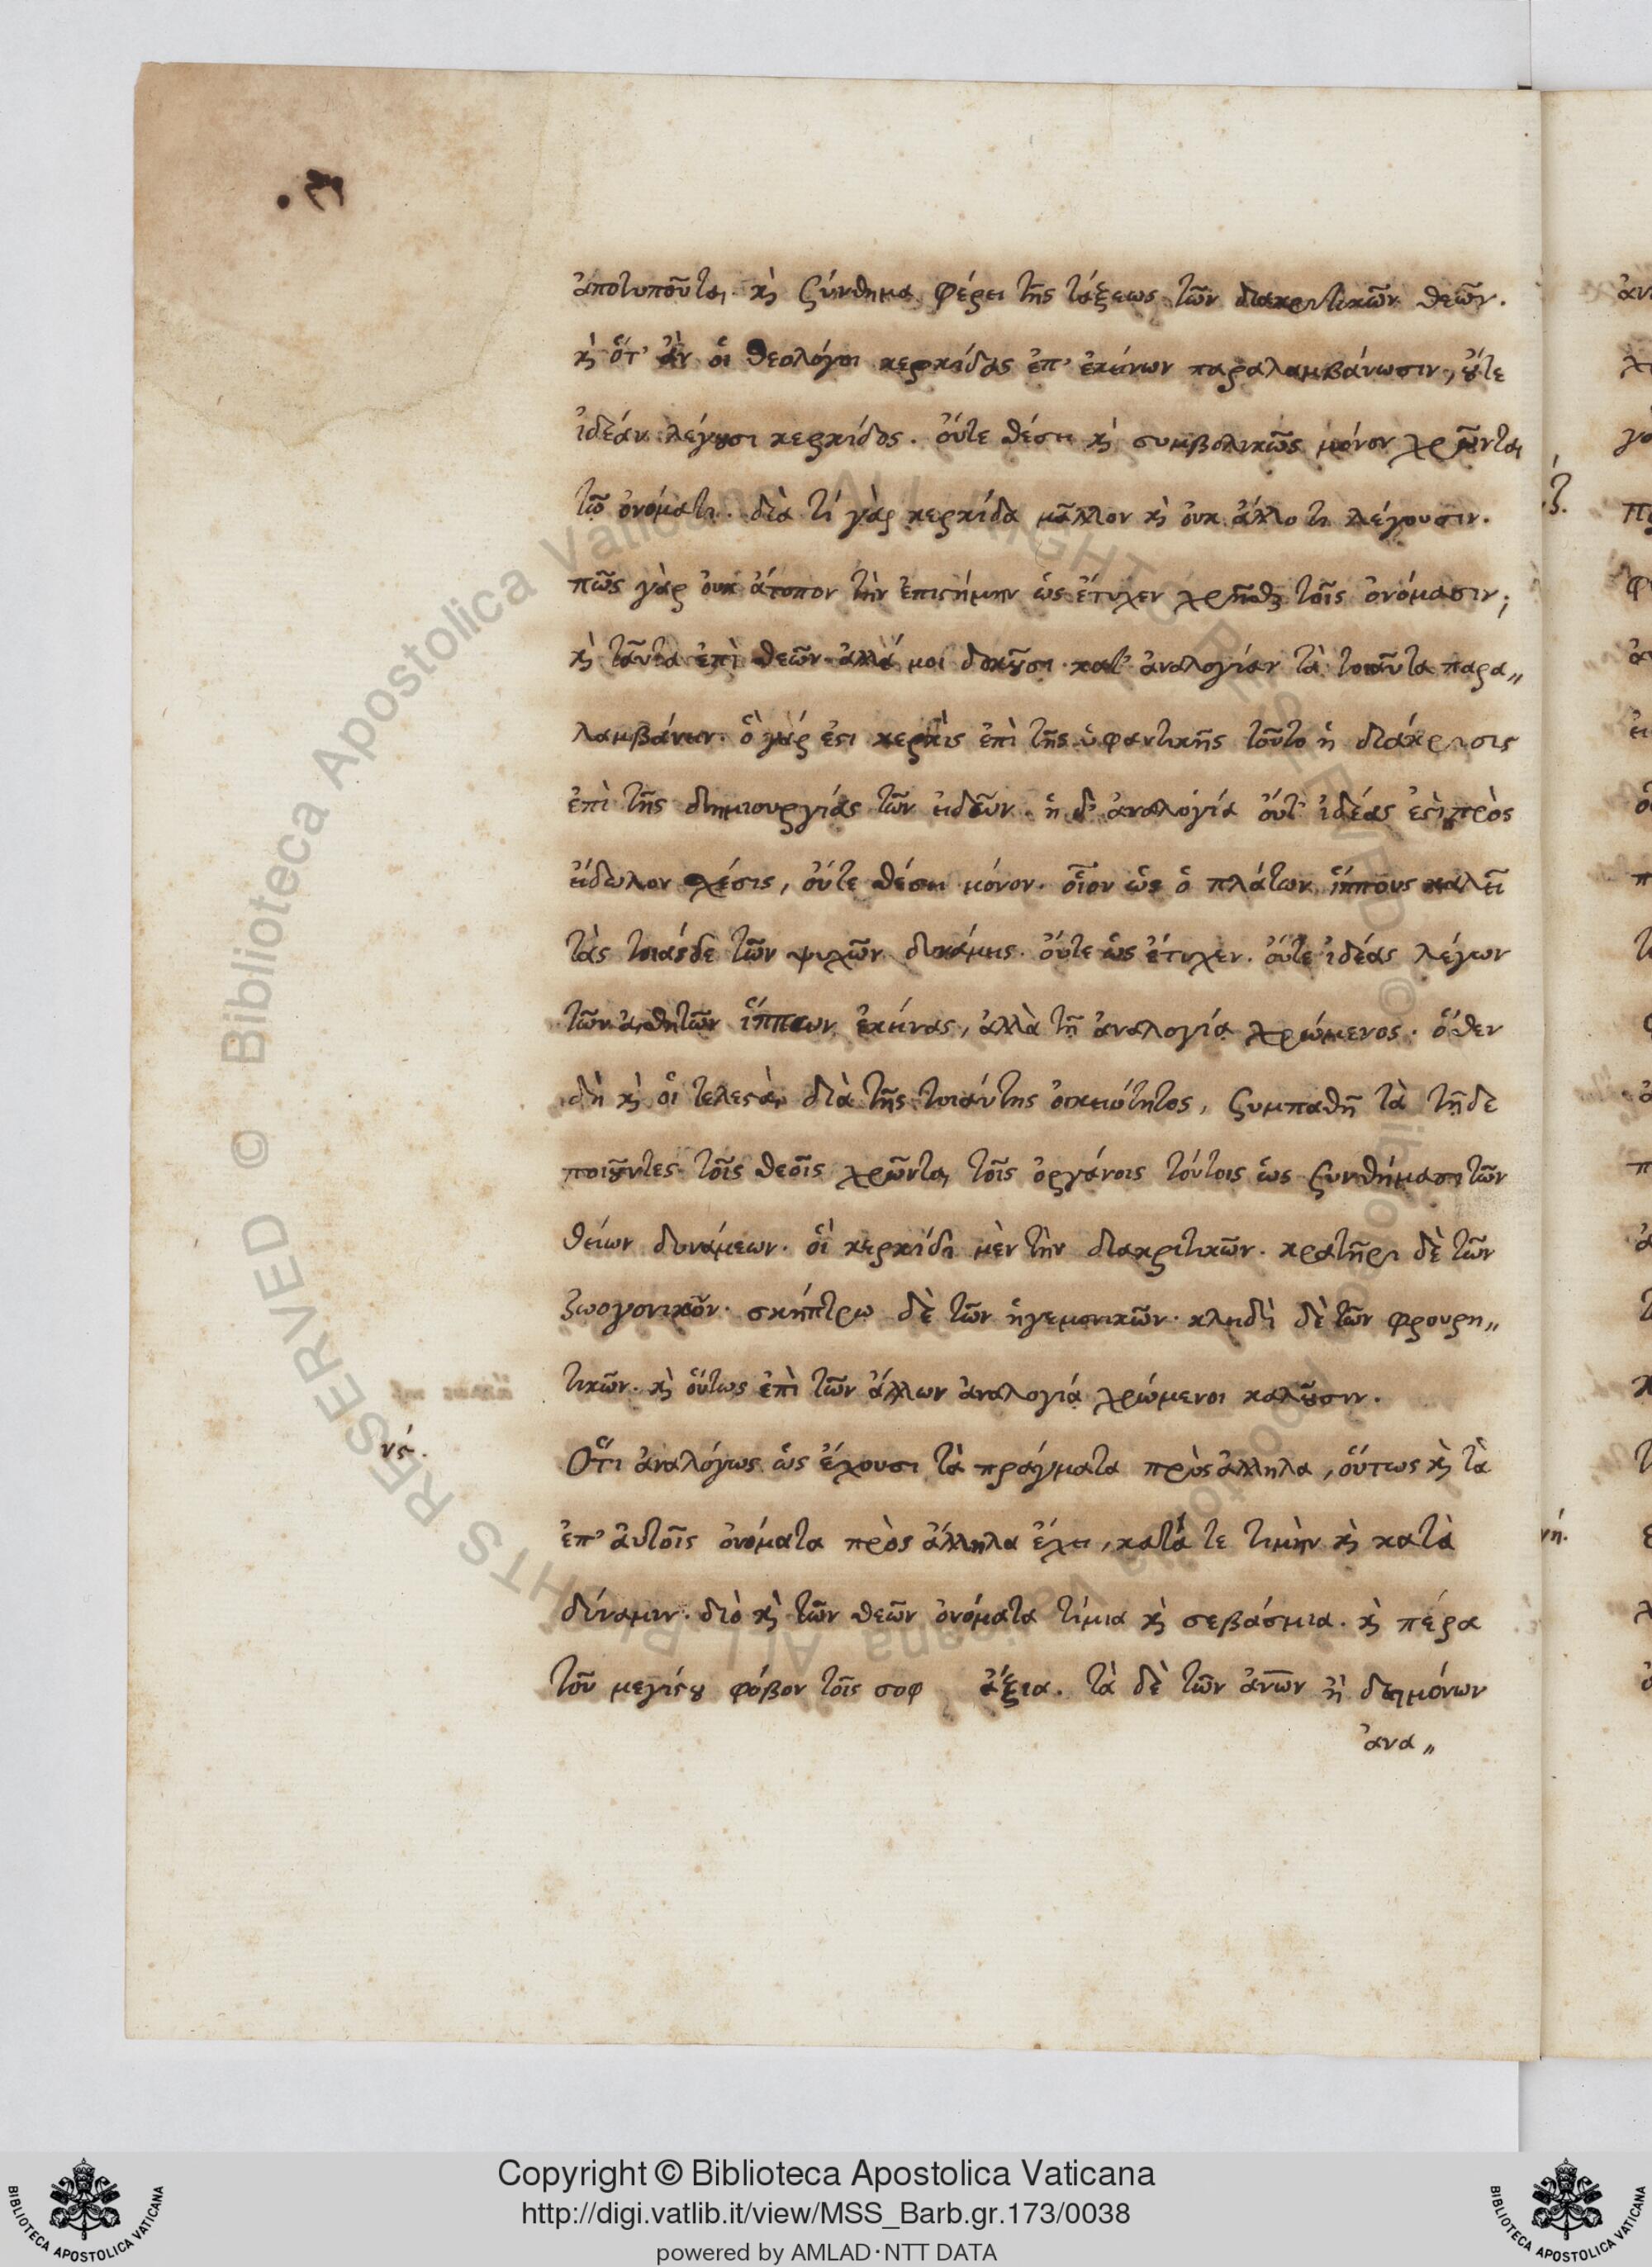 ἀποτυποῦται. καὶ ξύνθημα φέρει τῆς τάξεως τῶν διακριτικῶν θεῶν.
καὶ ὅτ' ἂν οἱ θεολόγοι κερκίδας ἐπ' ἐκείνων παραλαμβάνωσιν, οὔτε
ἰδέαν λέγουσι κερκίδος. οὔτε θέσει καὶ συμβολικῶς μόνον χρῶνται
τῷ ὀνόματι. διὰ τί γὰρ κερκίδα μᾶλλον καὶ οὐκ ἄλλο τι λέγουσιν.
πῶς γὰρ οὐκ ἄτοπον τὴν ἐπιστήμην ὡς ἔτυχεν χρῆσθαι τοῖς ὀνόμασιν;
καὶ ταῦτα ἐπὶ θεῶν. ἀλλά μοι δοκοῦσι κατ' ἀναλογίαν τὰ τοιαῦτα παρα„
λαμβάνειν. ὃ γάρ ἐστι κερκὶς ἐπὶ τῆς ὑφαντικῆς τοῦτο ἡ διάκρισις
ἐπὶ τῆς δημιουργίας τῶν εἰδῶν. ἡ δ' ἀναλογία οὔτ' ἰδέας ἐστὶ πρὸς
εἴδωλον σχέσις, οὔτε θέσει μόνον. οἷον ὡς ὁ πλάτων ἵππους καλεῖ
τὰς τοιάσδε τῶν ψυχῶν δυνάμεις. οὔτε ὡς ἔτυχεν. οὔτε ἰδέας λέγων
τῶν αἰσθητῶν ἵππων ἐκείνας, ἀλλὰ τῇ ἀναλογίᾳ χρώμενος. ὅθεν
δὴ καὶ οἱ τελεσταὶ διὰ τῆς τοιαύτης οἰκειότητος, ξυμπαθῆ τὰ τῇδε
ποιοῦντες τοῖς θεοῖς χρῶνται τοῖς ὀργάνοις τούτοις ὡς ξυνθήμασι τῶν
θείων δυνάμεων. οἷ κερκίδι μὲν τὴν διακριτικῶν. κρατῆρι δὲ τῶν
ζωογονικῶν. σκήπτρω δὲ τῶν ἡγεμονικῶν. κλειδὶ δὲ τῶν φρουρη„
τικῶν. καὶ οὕτως ἐπὶ τῶν ἄλλων ἀναλογίᾳ χρώμενοι καλοῦσιν.
νζ.
Ὅτι ἀναλόγως ὡς ἔχουσι τὰ πράγματα πρὸς ἄλληλα, οὕτως καὶ τὰ
ἐπ' αὐτοῖς ὀνόματα πρὸς ἄλληλα ἔχει, κατά τε τιμὴν καὶ κατὰ
δύναμιν. διὸ καὶ τῶν θεῶν ὀνόματα τίμια καὶ σεβάσμια. καὶ πέρα
τοῦ μεγίστου φόβον τοῖς σοφ ἄξια. τὰ δὲ τῶν ἀνῶν ἢ δαιμόνων
ἀνα„
Copyright © Biblioteca Apostolica Vaticana
http://digi.vatlib.it/view/MSS_Barb.gr.173/0038
powered by AMLAD·NTT DATA